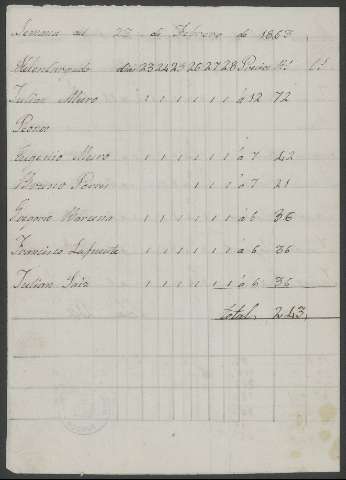 Semana del 23 de Febrero de 1863
dias 23 24 25 26 27 28 Precios Rs. Cs.
Julian Muro 1 1 1 1 1 1 á 12 72
Peones
Eugenio Muro 1 1 1 1 1 1 á 7 42
1 1 1 á 7 21
Gregorio 1 1 1 1 1 1 á 6 36
Francisco Lafuente 1 1 1 1 1 1 á 6 36
Julian Saiz 1 1 1 1 1 1 á 6 36
total. 243.